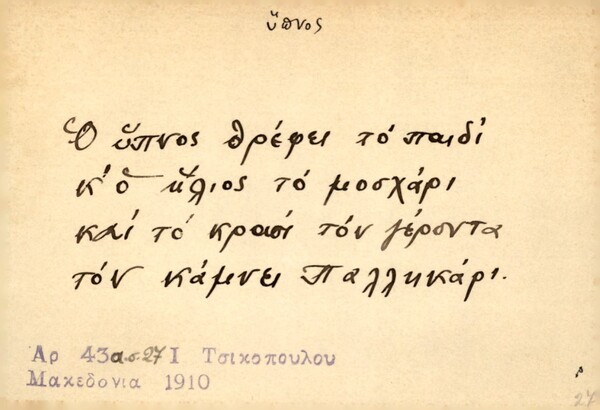 ὕπνος
Ὁ ὕπνος θρέφει τό παιδί
κ' ὁ ἥλιος τό μοσχάρι
καί τό κρασί τόν γέροντα
τόν κάμνει Παλληκάρι.
Αρ 43α.σ.27 Ι Τσικοπουλου
Μακεδονια 1910
27